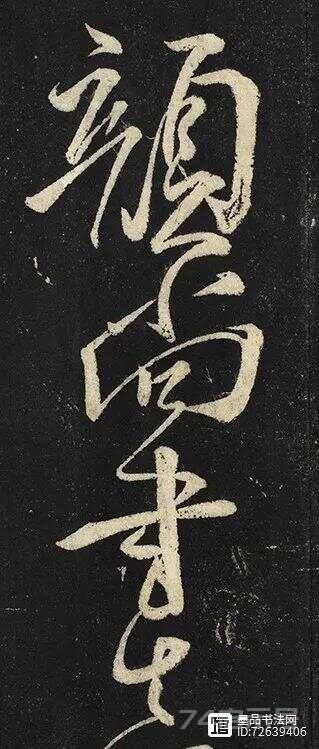 顏尚書
墨品书法网
ID:72639406